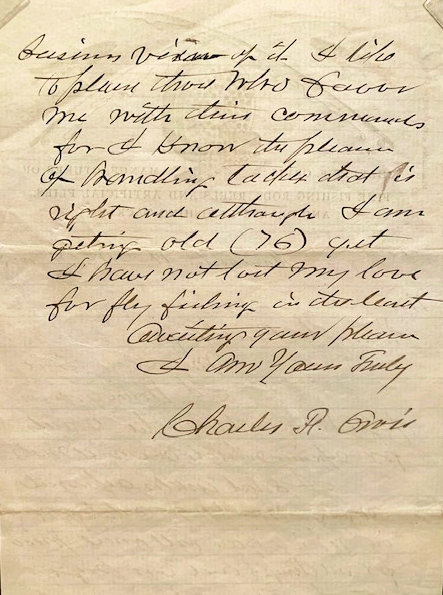 business view of it I like
to please those who favor
me with their commands
for I know the pleasure
of handling tackle that is
right and although I am
geting old (76) yet
I have not lost my love
for fly fishing in the least
Awaiting your pleasure
I Am Yours Truly
Charles F. Orvis